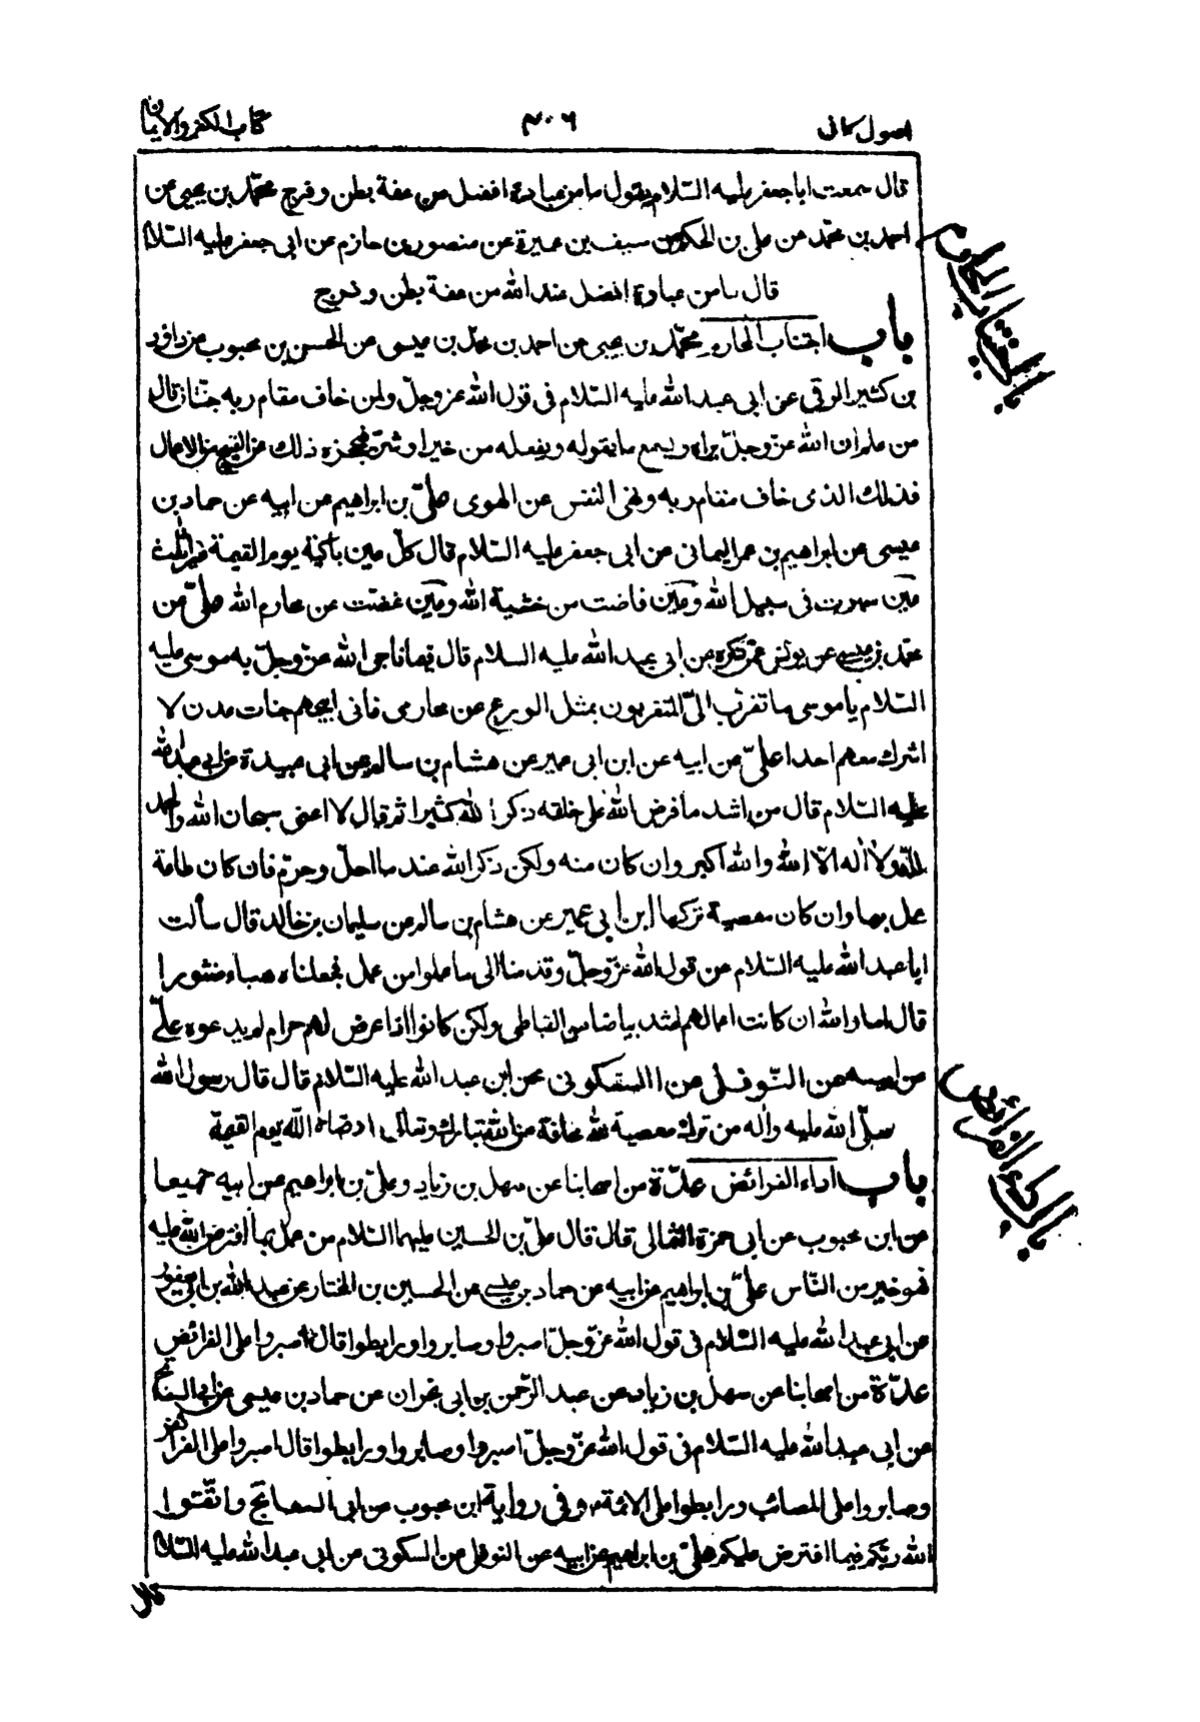 اصول كافى
٣٠٦
كتاب الكفر والايمان
قال سمعت ابا جعفر عليه السّلام يقول ما من عبادة افضل من عفة بطن وفرج محمّد بن يحيى عن
احمد بن محمّد عن على بن الحكم عن سيف بن عميرة عن منصور بن حازم عن ابى جعفر عليه السّلام
قال ما من عبادة افضل عند الله من عفة بطن وفرج
باب اجتناب المحارم محمّد بن يحيى عن احمد بن محمّد بن عيسى عن الحسن بن محبوب عن داود
بن كثير الرقى عن ابى عبد الله عليه السّلام فى قول الله عز وجلّ ولمن خاف مقام ربه جنّتان قال
من علم ان الله عزّ وجلّ يراه ويسمع ما يقوله ويفعله من خير او شرّ فيحجزه ذلك عن القبيح من الاعمال
فذلك الذى خاف مقام ربه ونهى النفس عن الهوى علىّ بن ابراهيم عن ابيه عن حماد بن
عيسى عن ابراهيم بن عمر اليمانى عن ابى جعفر عليه السّلام قال كلّ عين باكية يوم القيمة غير ثلث
عين سهرت فى سبيل الله وعين فاضت من خشية الله وعين غضّت عن محارم الله علىّ عن
محمّد بن عيسى عن يونس عمّن ذكره عن ابى عبد الله عليه السلام قال فيما ناجى الله عزّ وجلّ به موسى عليه
السّلام يا موسى ما تقرّب الىّ المتقربون بمثل الورع عن محارمى فانى ابيحهم جنات عدن لا
اشرك معهم احدا علىّ عن ابيه عن ابن ابى عمير عن هشام بن سالم عن ابى عبيدة عن ابى عبد الله
عليه السّلام قال من اشد ما فرض الله على خلقه ذكر الله كثيرا ثم قال لا اعنى سبحان الله والحمد
لله ولا اله الّا الله والله اكبر وان كان منه ولكن ذكر الله عند ما احلّ وحرّم فان كان طاعة
عمل بها وان كان معصية تركها ابن ابى عمير عن هشام بن سالم عن سليمان بن خالد قال سألت
ابا عبد الله عليه السّلام عن قول الله عزّ وجلّ وقدمنا الى ما عملوا من عمل فجعلناه هباء منثورا
قال اما والله ان كانت اعمالهم اشد بياضا من القباطى ولكن كانوا اذا عرض لهم حرام لم يدعوه علىّ
عن ابيه عن النّوفلى عن السّكونى عن ابى عبد الله عليه السّلام قال قال رسول الله
صلّى الله عليه وآله من ترك معصية لله مخافة من الله تبارك وتعالى ارضاه الله يوم القيمة
باب اداء الفرائض عدّة من اصحابنا عن سهل بن زياد وعلىّ بن ابراهيم عن ابيه جميعا
عن ابن محبوب عن ابى حمزة الثمالى قال قال علىّ بن الحسين عليهما السّلام من عمل بما افترض الله عليه
فهو خير من النّاس علىّ بن ابراهيم عن ابيه عن حماد بن عيسى عن الحسين بن المختار عن عبد الله بن ابى يعفور
عن ابى عبد الله عليه السّلام فى قول الله عزّ وجلّ اصبروا وصابروا ورابطوا قال اصبروا على الفرائض
عدّة من اصحابنا عن سهل بن زياد عن عبد الرّحمن بن ابى نجران عن حماد بن عيسى عن ابى السفاتج
عن ابى عبد الله عليه السّلام فى قول الله عزّ وجلّ اصبروا وصابروا ورابطوا قال اصبروا على الفرائض
وصابروا على المصائب ورابطوا على الائمة وفى رواية ابن محبوب عن ابى السفاتج واتّقوا
الله ربّكم فيما افترض عليكم علىّ بن ابراهيم عن ابيه عن النوفلى عن السكونى عن ابى عبد الله عليه السّلام
قال
باب اجتناب المحارم
باب اداء الفرائض